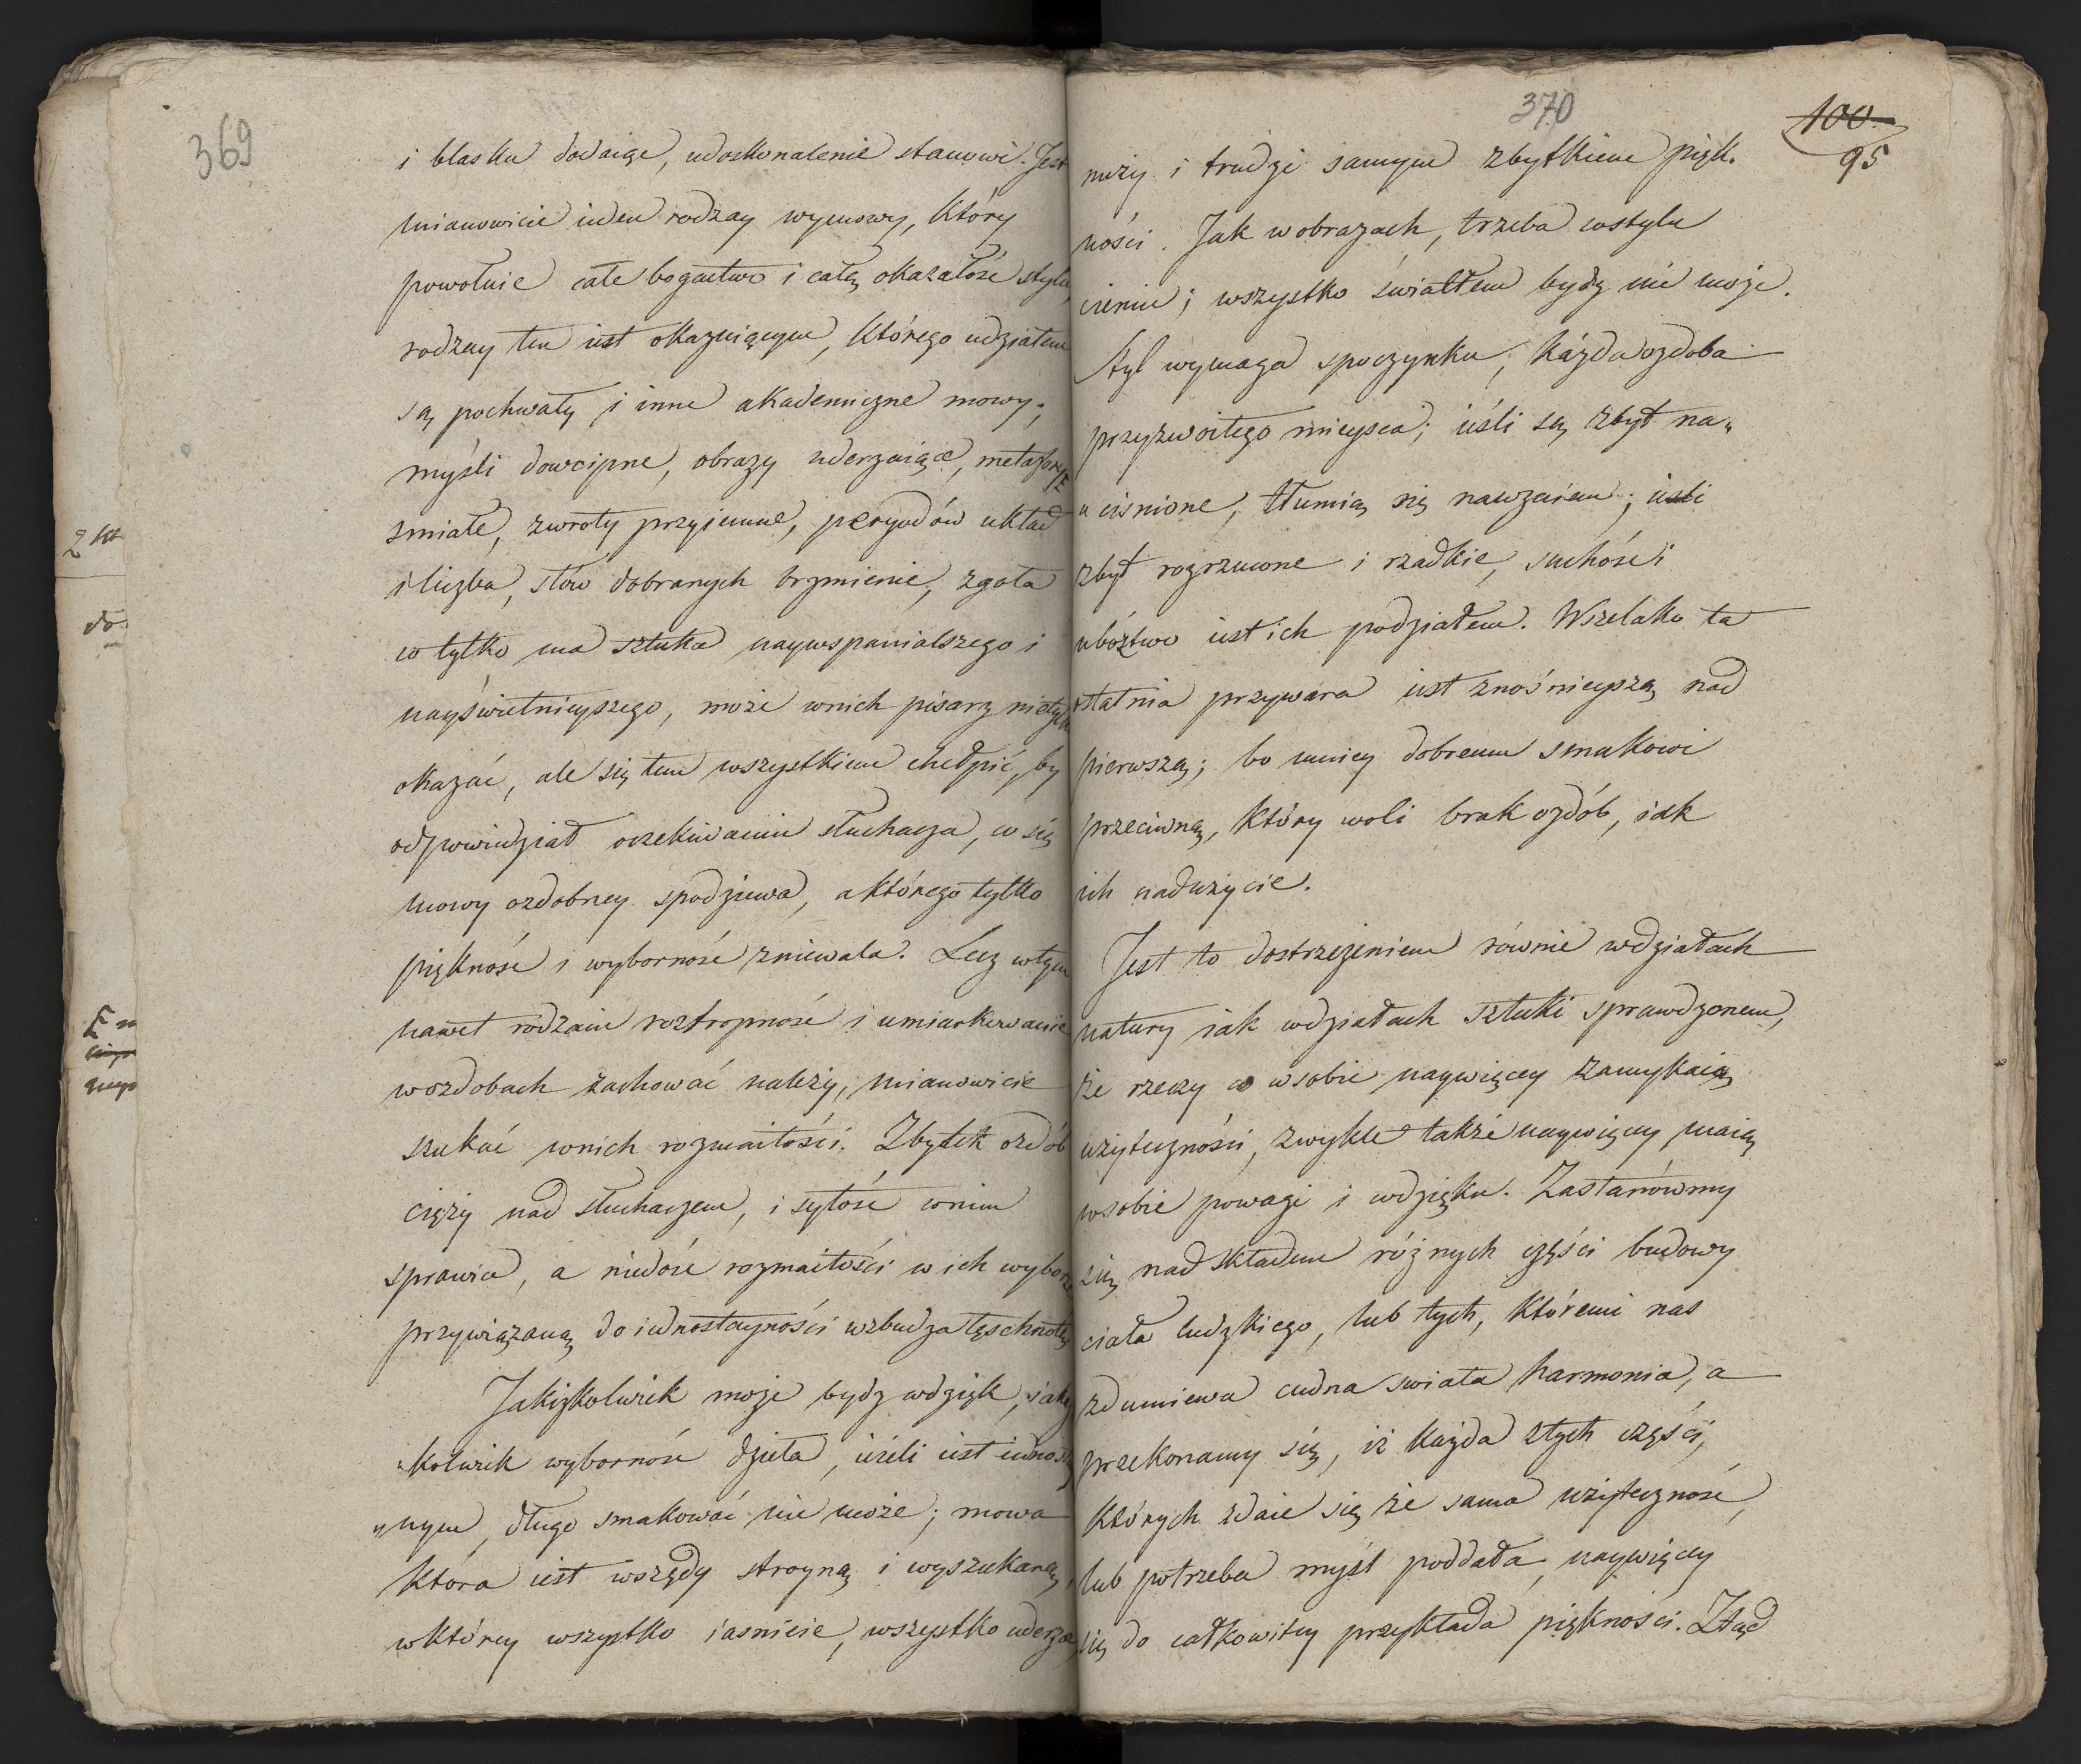 369
i blasku dodaiąc, udoskonalenie stanowi. Jest
mianowicie ieden rodzay wymowy, który
powołuie całe bogactwo i całą okazałość stylu,
rodzay ten iest okazuiącym, którego udziałem
są pochwały i inne akademiczne mowy;
myśli dowcipne, obrazy uderzaiące, metafory
smiałe, zwroty przyiemne, peryodów układ
i liczba, słów dobranych brzmienie, zgoła
co tylko ma sztuka naywspanialszego i
nayświetnieyszego, może wnich pisarz nietylko
okazać, ale się tem wszystkiem chełpić, by
odpowiedział oczekiwaniu słuchacza, co się
mowy ozdobney spodziewa, a którego tylko
piękność i wyborność zniewala. Lecz wtym
nawet rodzaiu roztropność i umiarkowanie
wozdobach zachować należy, mianowicie
szukać wnich rozmaitości. Zbytek ozdób
cięży nad słuchaczem, i sytość wnim
sprawia, a niedość rozmaitości w ich wyborze
przywiązaną do iednostayności wzbudza tęschnotę
Jakiżkolwiek może bydz wdzięk, iaka
kolwiek wyborność dzieła, ieżeli iest iednostay
„nym, długo smakować nie może; mowa
która iest wszędy stroyną i wyszukaną,
wktórey wszystko iaśnieie, wszystko uderza,
2 kt
do
E m
370
100
95
nuży i trudzi samym zbytkiem pięk.
ności. Jak wobrazach, trzeba wstylu
cienie; wszystko światłem bydz nie może.
Styl wymaga spoczynku, każda ozdoba
przyzwoitego mieysca; ieśli są zbyt na„
„ciśnione, tłumią się nawzaiem; ieśli
zbyt rozrzucone i rzadkie, suchość i
ubóztwo iest ich podziałem. Wszelako ta
ostatnia przywara iest znośnieyszą nad
pierwszą; bo mniey dobremu smakowi
przeciwną, który woli brak ozdób, iak
ich nadużycie.
Jest to dostrzeżeniem równie wdziałach
natury iak wdziałach sztuki sprawdzonem,
że rzeczy co wsobie naywięcey zamykaią
użyteczności, zwykle także naywięcey maią
wsobie powagi i wdzięku. Zastanówmy
się nad składem różnych części budowy
ciała ludzkiego, lub tych, któremi nas
zdumiewa cudna świata harmonia, a
przekonamy się, iż każda ztych części,
których zdaie się że sama użyteczność,
lub potrzeba myśl poddała, naywięcey
się do całkowitey przykłada piękności. Ztąd